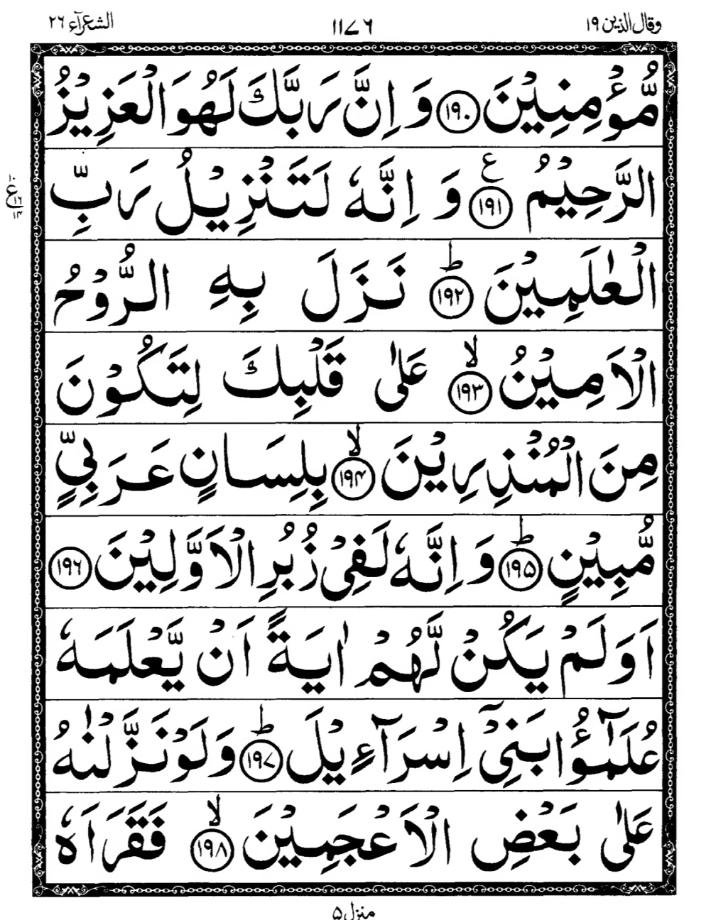 وقال الذين ١٩ ١١٧٦ الشعرآء ٢٦
مُّؤْمِنِيْنَ ﴿۱۹۰﴾ وَ اِنَّ رَبَّكَ لَهُوَ الْعَزِيْزُ
الرَّحِيْمُ ﴿۱۹۱﴾ ع وَ اِنَّهٗ لَتَنْزِيْلُ رَبِّ
الْعٰلَمِيْنَ ﴿۱۹۲﴾ ط نَزَلَ بِهِ الرُّوْحُ
الْاَمِيْنُ ﴿۱۹۳﴾ لا عَلٰى قَلْبِكَ لِتَكُوْنَ
مِنَ الْمُنْذِرِيْنَ ﴿۱۹۴﴾ لا بِلِسَانٍ عَرَبِيٍّ
مُّبِيْنٍ ﴿۱۹۵﴾ ط وَ اِنَّهٗ لَفِيْ زُبُرِ الْاَوَّلِيْنَ ﴿۱۹۶﴾
اَوَلَمْ يَكُنْ لَّهُمْ اٰيَةً اَنْ يَّعْلَمَهٗ
عُلَمٰٓؤُا بَنِيْٓ اِسْرَآءِيْلَ ﴿۱۹۷﴾ ط وَلَوْ نَزَّلْنٰهُ
عَلٰى بَعْضِ الْاَعْجَمِيْنَ ﴿۱۹۸﴾ لا فَقَرَاَهٗ
منزل ۵